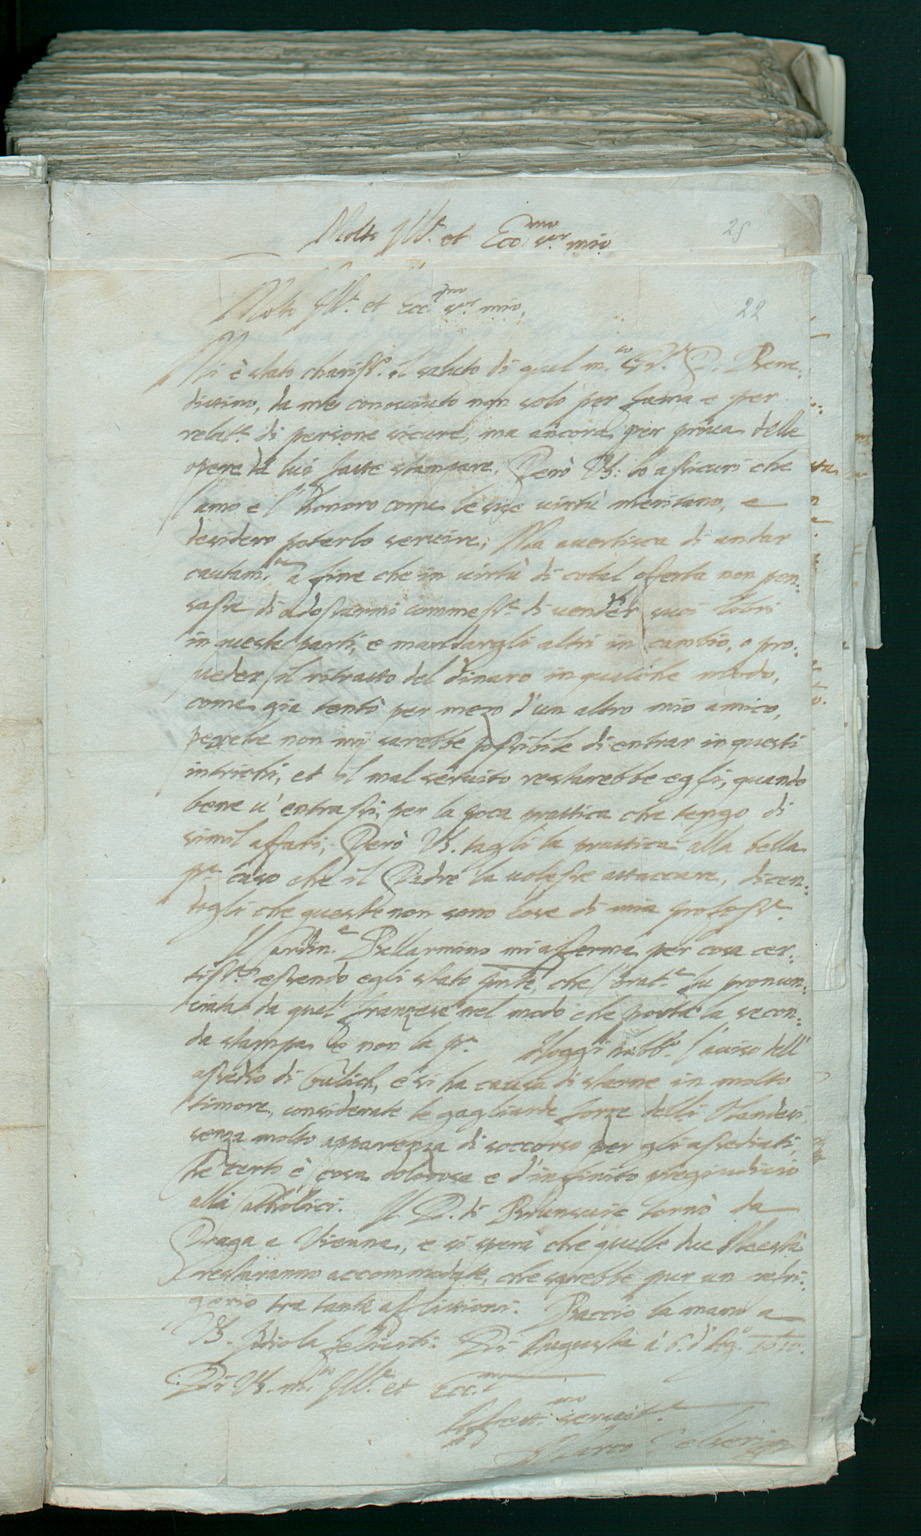 Molto Ill.re et Ecc.mo S.or mio
25
Molto Ill.re et Ecc.mo S.or mio,
22
Mi è stato chariss.o il saluto di quel m.to R.do P. Bene-
dittino, da me conosciuto non solo per fama e per
relat.e di persone sicure, ma ancora per prova delle
opere da lui fatte stampare. Però VS: lo assicuri che
l'amo e l'honoro come le sue virtù meritano, e
desidero poterlo servire; Ma avertisca di andar
cautam.te a fine che in virtù di cotal offerta non pen-
sasse di adossarmi commess.e di vender suoi libri
in queste parti, e mandargli altri in cambio, o pro-
veder il ritratto del dinaro in qualche modo,
come già tentò per mezo d'un altro mio amico,
perche non mi sarebbe possibile di entrar in questi
intrichi, et il mal servito restarebbe egli, quando
bene v'entrassi, per la poca prattica che tengo di
simil affari; Però VS. tagli la prattica alla bella
p.a caso che il Padre la volesse attaccare, dicen-
dogli che queste non sono cose di mia profess.e
Il Cardin.e Bellarmino mi afferma per cosa cer-
tiss.a essendo egli stato pnte, che l'orat.e fu pronun-
tiata da quel franzese nel modo che porta la secon-
da stampa e non la p.a Hoggi habb.o l'aviso dell'
assedio di Giulich, e si ha causa di starne in molto
timore, considerate le gagliarde forze delli Olandesi,
senza molto apparenza di soccorso per gli assediati,
che certo è cosa dolorosa e d'infinito pregiudicio
alli Catholici. Il D. di Brunsvic tornò da
Praga a Vienna, e si spera che quelle due Maestà
restaranno accommodate, che sarebbe pur un refri-
gerio tra tante afflittioni. Baccio la mano a
VS. Iddio la feliciti. Di Augusta à 6. d'Ag.o 1610.
Di VS. m.to Ill.re et Ecc.ma
Affett.mo servit.e
Marco Velseri